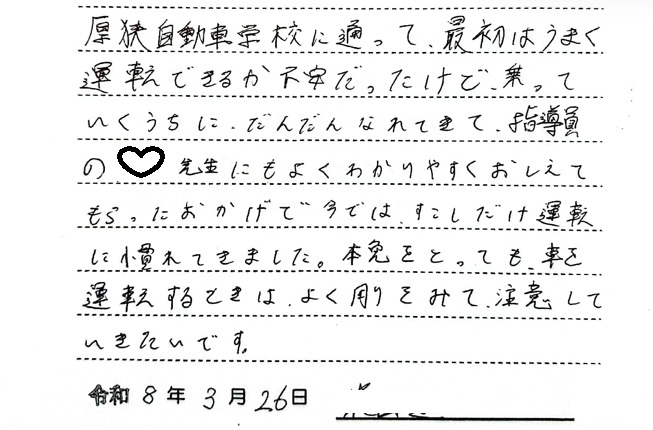 厚狭自動車学校に通って、最初はうまく
運転できるか不安だったけど、乗って
いくうちに、だんだんなれてきて、指導員
の♡先生にもよくわかりやすくおしえて
もらったおかげで今では、すこしだけ運転
に慣れてきました。本免をとっても、車を
運転するときは、よく周りをみて、注意して
いきたいです。
令和8年3月26日